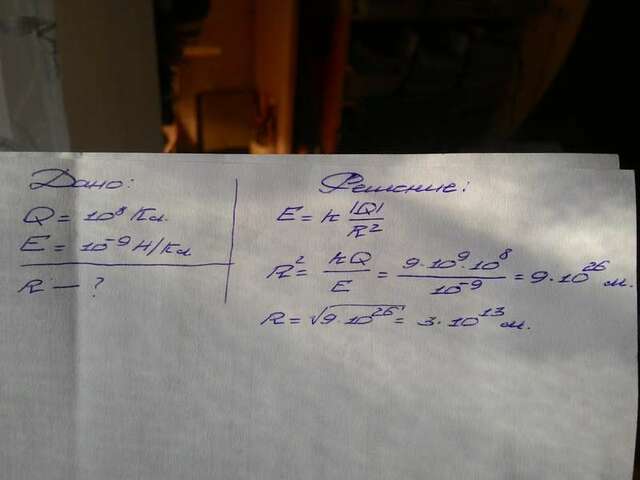 Дано:
Q = 10⁸ Кл.
E = 10⁻⁹ Н/Кл
R — ?
Решение:
E = k |Q|/R²
R² = kQ/E = 9·10⁹·10⁸/10⁻⁹ = 9·10²⁶ м.
R = √9·10²⁶ = 3·10¹³ м.